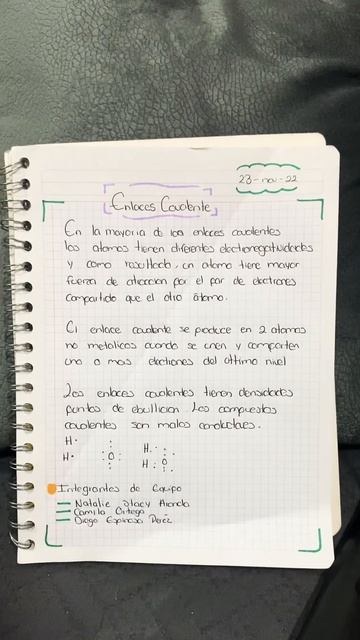 23-nov-22
Enlaces Covalente
En la mayoria de los enlaces covalentes
los atomos tienen diferentes electronegatividades
y como resultado, un atomo tiene mayor
fuerza de atraccion por el par de electrones
compartido que el otro átomo.
El enlace covalente se produce en 2 atomos
no metalicos cuando se unen y comparten
uno o mas electrones del ultimo nivel
Los enlaces covalentes tienen densidades
puntos de ebullicion. Los compuestos
covalentes son malos conductores.
H· :O: H· :
H· H:O:
Integrantes de Equipo
Natalie Stacy
Camila Ortega
Diego Espinosa Perez